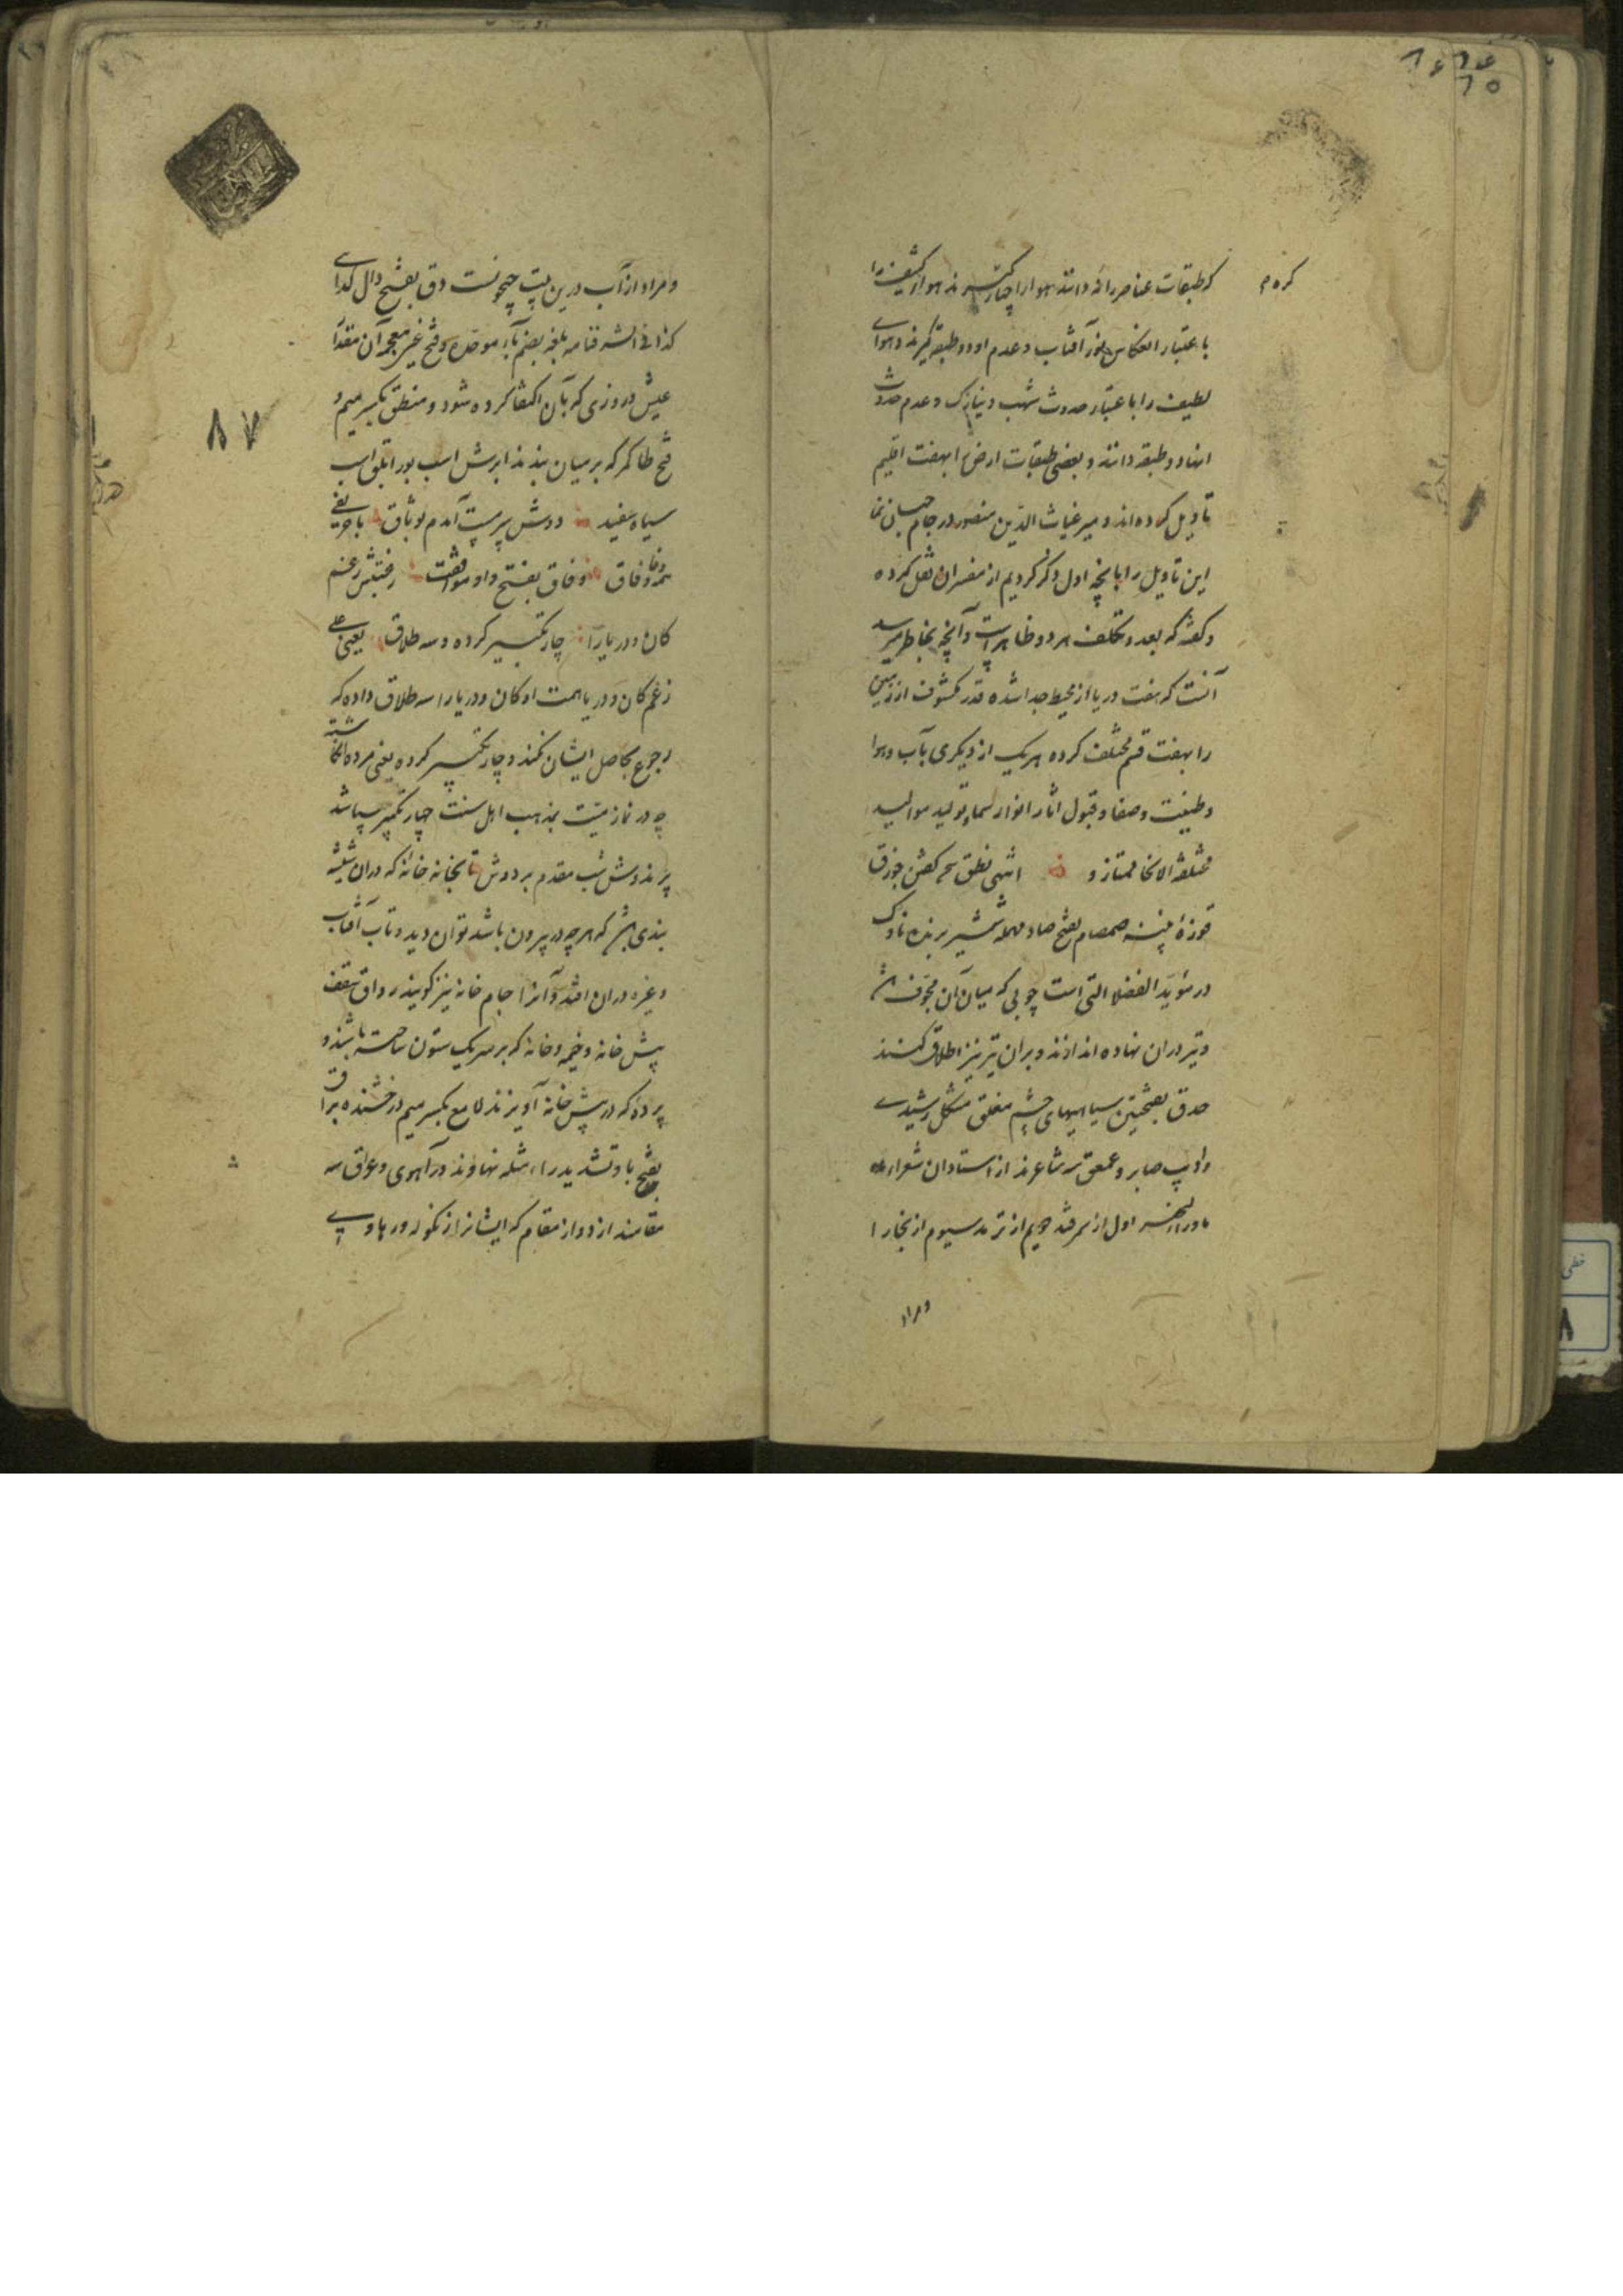 که طبقات عناصر را نه دانند هوا را چهار گیرند هوای کثیف را
کره م
باعتبار انعکاس نور آفتاب و عدم او دو طبقه گیرند و هوای
لطیف را باعتبار حدوث شهب و نیازک و عدم حدوث
اینها دو طبقه دانند و بعضی طبقات ارض را بهفت اقلیم
تاویل کرده اند و میر غیاث الدین منصور در جام جهان نما
این تاویل را با آنچه اول ذکر کردیم از مفسران نقل کرده
و گفته که بعد و تکلف هر دو ظاهر است و آنچه بخاطر میرسد
آنست که هفت دریا از محیط جدا شده قدر مکشوف از زمین
را بهفت قسم مختلف کرده هر یک از دیگری بآب و هوا
و طینت و صفا و قبول اثار انوار سما و تولید موالید
مختلفة الانحا ممتاز و انتهی نطق سخن گفتن جوزق
قوزهٔ پنبه صمصام بفتح صاد مهمله شمشیر برنده ناوک
در مؤید الفضلا التی است چوبی که میان آن مجوف باشد
و تیر در آن نهاده اندازند و بر آن تیر نیز اطلاق کنند
حدق بفتحتین سیاهیهای چشم مغلق مشکل رشیدی
و ادیب صابر و عمعق سه شاعرند از استادان شعراء
ماوراء النهر اول از سمرقند دویم از ترمد سیوم از بخارا
و مراد
و مراد از آب درین بیت جیحونست دق بفتح دال گدای
کذا فی الشرفنامه بلغه بضم باء موحده و فتح غین معجمه آن مقدار
عیش و روزی که بآن اکتفا کرده شود و منطق بکسر میم و
فتح طا کمر که بر میان بندند ابرش اسب بور ابلق اسب
۸۷
سیاه سفید دوش سرمست آمدم بوثاق با حریفی
همه وفا و وفاق وفاق بفتح واو موافقت رغم
کان و دریا را چار تکبیر کرده و سه طلاق یعنی علی
زغم کان و دریا همت او کان و دریا را سه طلاق داده که
رجوع بحاصل ایشان نکند و چار تکبیر کرده یعنی مرده انگاشته
چه در نماز میت بمذهب اهل سنت چهار تکبیر میباشد
پرندوش شب مقدم بر دوش تابخانه خانهٔ که در آن شیشه
بندی باشد که هر چه در بیرون باشد توان دید و تاب آفتاب
و غیره در آن افتد و آنرا جام خانه نیز گویند رواق سقف
پیش خانه و خیمه و خانه که بر سر یک ستون ساخته باشند و
پردهٔ که در پیش خانه آویزند لامع بکسر میم درخشنده براق
بفتح با و تشدید را مثله نهاوند و رآهوی و عراق سه
مقامند از دوازده مقام که ایشانرا زنگوله و رهاوی